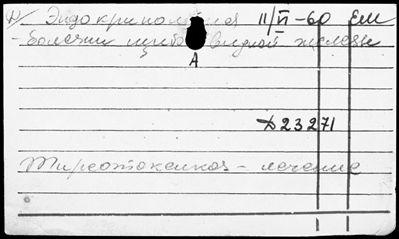 Эндокринология 11/VI-60 ЕМ
- болезни щитовидной железы
А
23271
Тиреотоксикоз - лечение